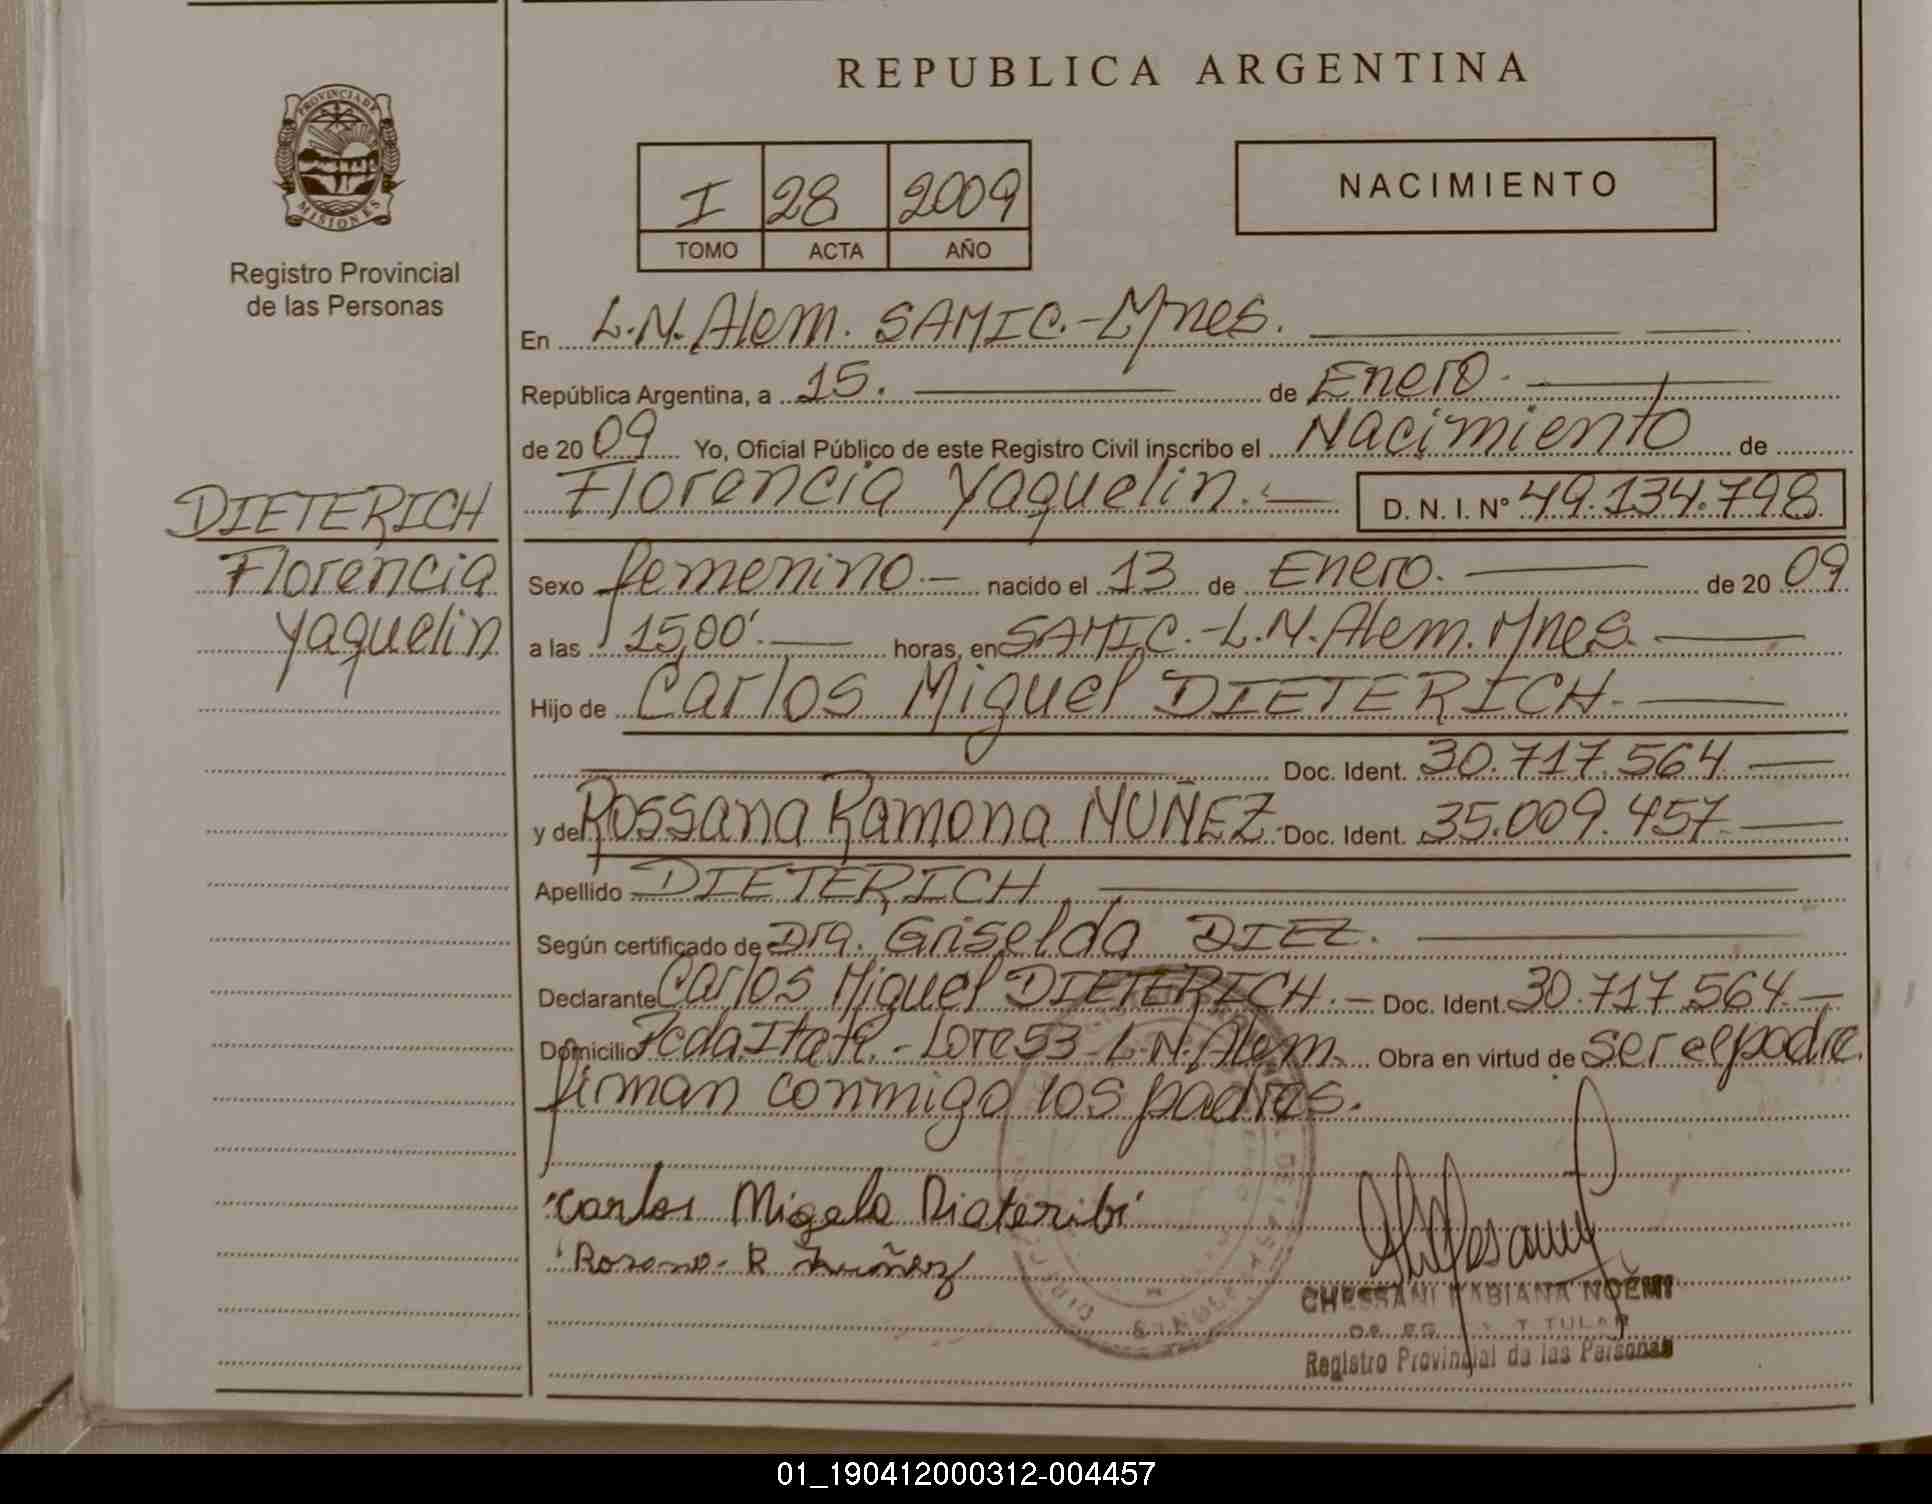 REPUBLICA ARGENTINA
PROVINCIA DE
MISIONES
Registro Provincial
de las Personas
I 28 2009
TOMO ACTA AÑO
NACIMIENTO
En L.N. Alem. SAMIC.-Mnes.
República Argentina, a 15. de Enero.
de 2009 Yo, Oficial Público de este Registro Civil inscribo el Nacimiento de
Florencia Yaquelin. D. N. I. Nº 49.134.798
DIETERICH
Florencia
Yaquelin
Sexo femenino.- nacido el 13 de Enero. de 2009
a las 15,00'. horas, en SAMIC.-L.N. Alem. Mnes.
Hijo de Carlos Miguel DIETERICH.
Doc. Ident. 30.717.564
y de Rossana Ramona NUÑEZ. Doc. Ident. 35.009.457.
Apellido DIETERICH
Según certificado de Dra. Griselda DIEZ.
Declarante Carlos Miguel DIETERICH.- Doc. Ident. 30.717.564.-
Domicilio Pcda. Itatí.-Lote 53-L.N. Alem. Obra en virtud de ser el padre.
firman conmigo los padres.
Carlos Migelo
R
CHESSANI FABIANA NOEMI
Registro Provincial de las Personas
01_190412000312-004457